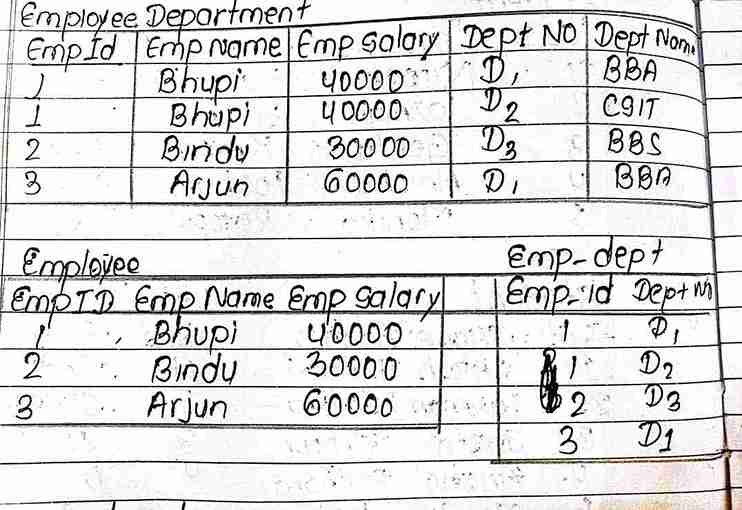 Employee Department
Emp Id Emp Name Emp Salary Dept No Dept Nam.
1 Bhupi 40000 D1 BBA
1 Bhupi 40000 D2 CSIT
2 Bindu 30000 D3 BBS
3 Arjun 60000 D1 BBA
Employee Emp-dept
Emp ID Emp Name Emp Salary Emp-id Dept No
1 Bhupi 40000 1 D1
2 Bindu 30000 1 D2
3 Arjun 60000 2 D3
3 D1